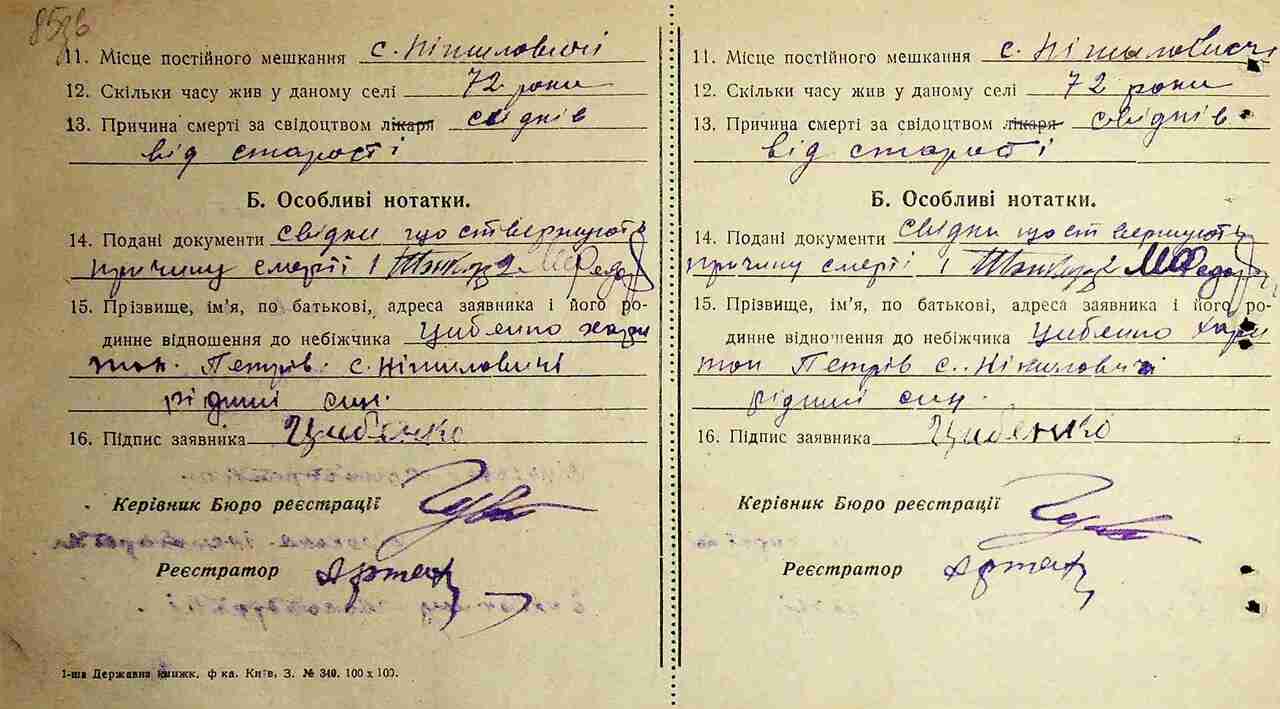 853в
11. Місце постійного мешкання с. Ніжиловичі
12. Скільки часу жив у даному селі 72 роки
13. Причина смерті за свідоцтвом лікаря свідків
від старості
Б. Особливі нотатки.
14. Подані документи свідки що ствержують
причину смерті 1 2 М Федор
15. Прізвище, ім'я, по батькові, адреса заявника і його ро-
динне відношення до небіжчика Цибенко Хари
тон. Петрів. с. Ніжиловичі
рідний син.
16. Підпис заявника Цибенко
Керівник Бюро реєстрації
Реєстратор
1-ша Державна книжк. ф-ка. Київ, З. № 340. 100 х 100.
11. Місце постійного мешкання с. Ніжиловичі
12. Скільки часу жив у даному селі 72 роки
13. Причина смерті за свідоцтвом лікаря свідків
від старості
Б. Особливі нотатки.
14. Подані документи свідки що ствержують
причину смерті 1 2 М Федор
15. Прізвище, ім'я, по батькові, адреса заявника і його ро-
динне відношення до небіжчика Цибенко Хари
тон Петрів с. Ніжиловичі
рідний син.
16. Підпис заявника Цибенко
Керівник Бюро реєстрації
Реєстратор